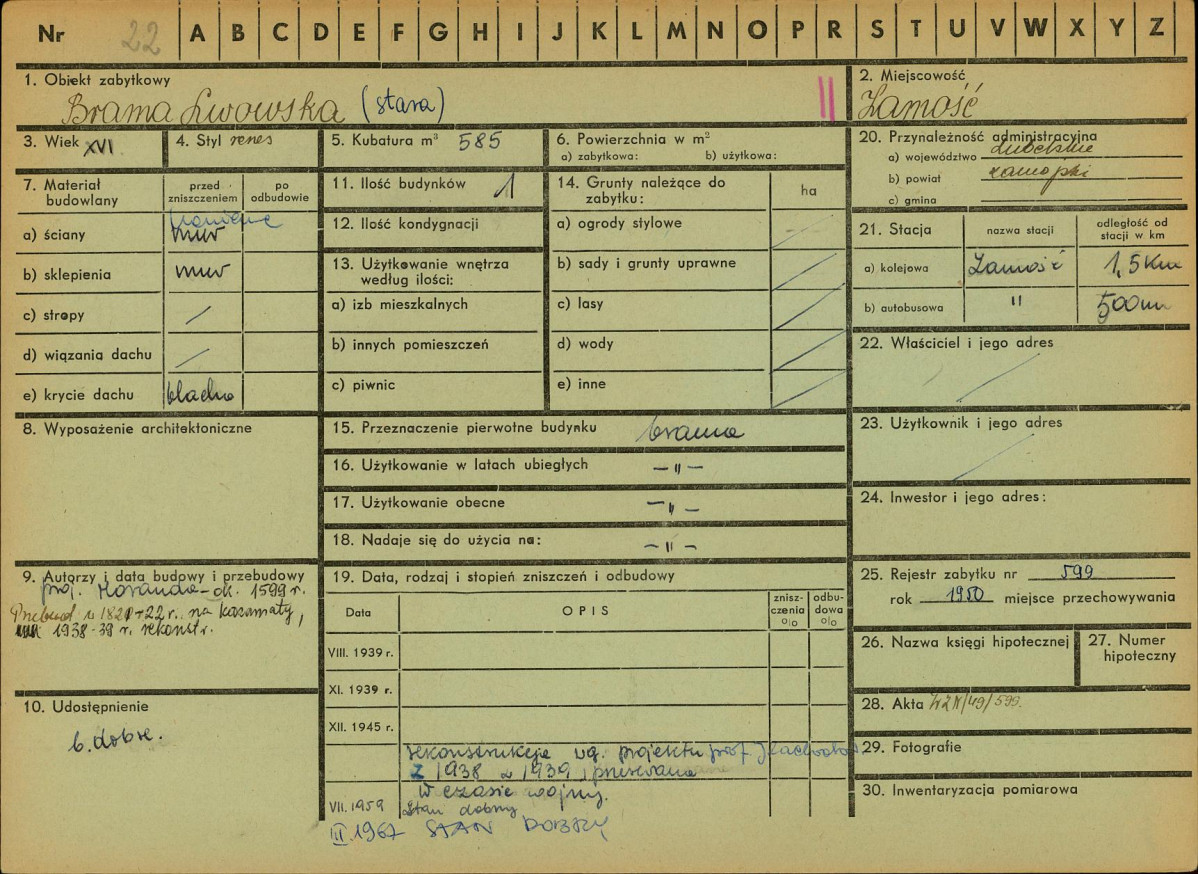 Nr 22 A B C D E F G H I J K L M N O P R S T U V W X Y Z
1. Obiekt zabytkowy
Brama Lwowska (stara)
2. Miejscowość
Zamość
3. Wiek XVI
4. Styl renes
5. Kubatura m³ 585
6. Powierzchnia w m²
a) zabytkowa: b) użytkowa:
20. Przynależność administracyjna
a) województwo Lubelskie
b) powiat zamojski
c) gmina
7. Materiał budowlany
przed zniszczeniem
po odbudowie
a) ściany kamienne mur
b) sklepienia mur
c) stropy /
d) wiązania dachu /
e) krycie dachu blacha
11. Ilość budynków 1
12. Ilość kondygnacji
13. Użytkowanie wnętrza
według ilości:
a) izb mieszkalnych
b) innych pomieszczeń
c) piwnic
14. Grunty należące do
zabytku:
ha
a) ogrody stylowe
b) sady i grunty uprawne
c) lasy
d) wody
e) inne
21. Stacja
nazwa stacji
odległość od
stacji w km
a) kolejowa Zamość 1,5 Km
b) autobusowa " 500 m
22. Właściciel i jego adres
23. Użytkownik i jego adres
24. Inwestor i jego adres:
8. Wyposażenie architektoniczne
15. Przeznaczenie pierwotne budynku brama
16. Użytkowanie w latach ubiegłych — " —
17. Użytkowanie obecne — " —
18. Nadaje się do użycia na: — " —
9. Autorzy i data budowy i przebudowy
proj. Moranda - ok. 1599 r.
Przebud w 1821-22 r. na kazamaty,
1938-39 r. rekonstr.
10. Udostępnienie
b. dobre.
19. Data, rodzaj i stopień zniszczeń i odbudowy
Data
OPIS
znisz-
czenia
%
odbu-
dowa
%
VIII. 1939 r.
XI. 1939 r.
XII. 1945 r.
rekonstrukcja wg. projektu prof
z 1938 i 1939, przerwana
w czasie wojny.
VII. 1959 Stan dobry
II. 1967 STAN DOBRY
25. Rejestr zabytku nr 599
rok 1950 miejsce przechowywania
26. Nazwa księgi hipotecznej
27. Numer
hipoteczny
28. Akta WZK/49/599.
29. Fotografie
30. Inwentaryzacja pomiarowa